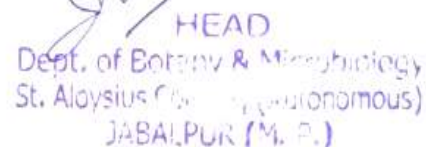 HEAD
Dept. of Botany & Microbiology
St. Aloysius (Autonomous)
JABALPUR (M. P.)